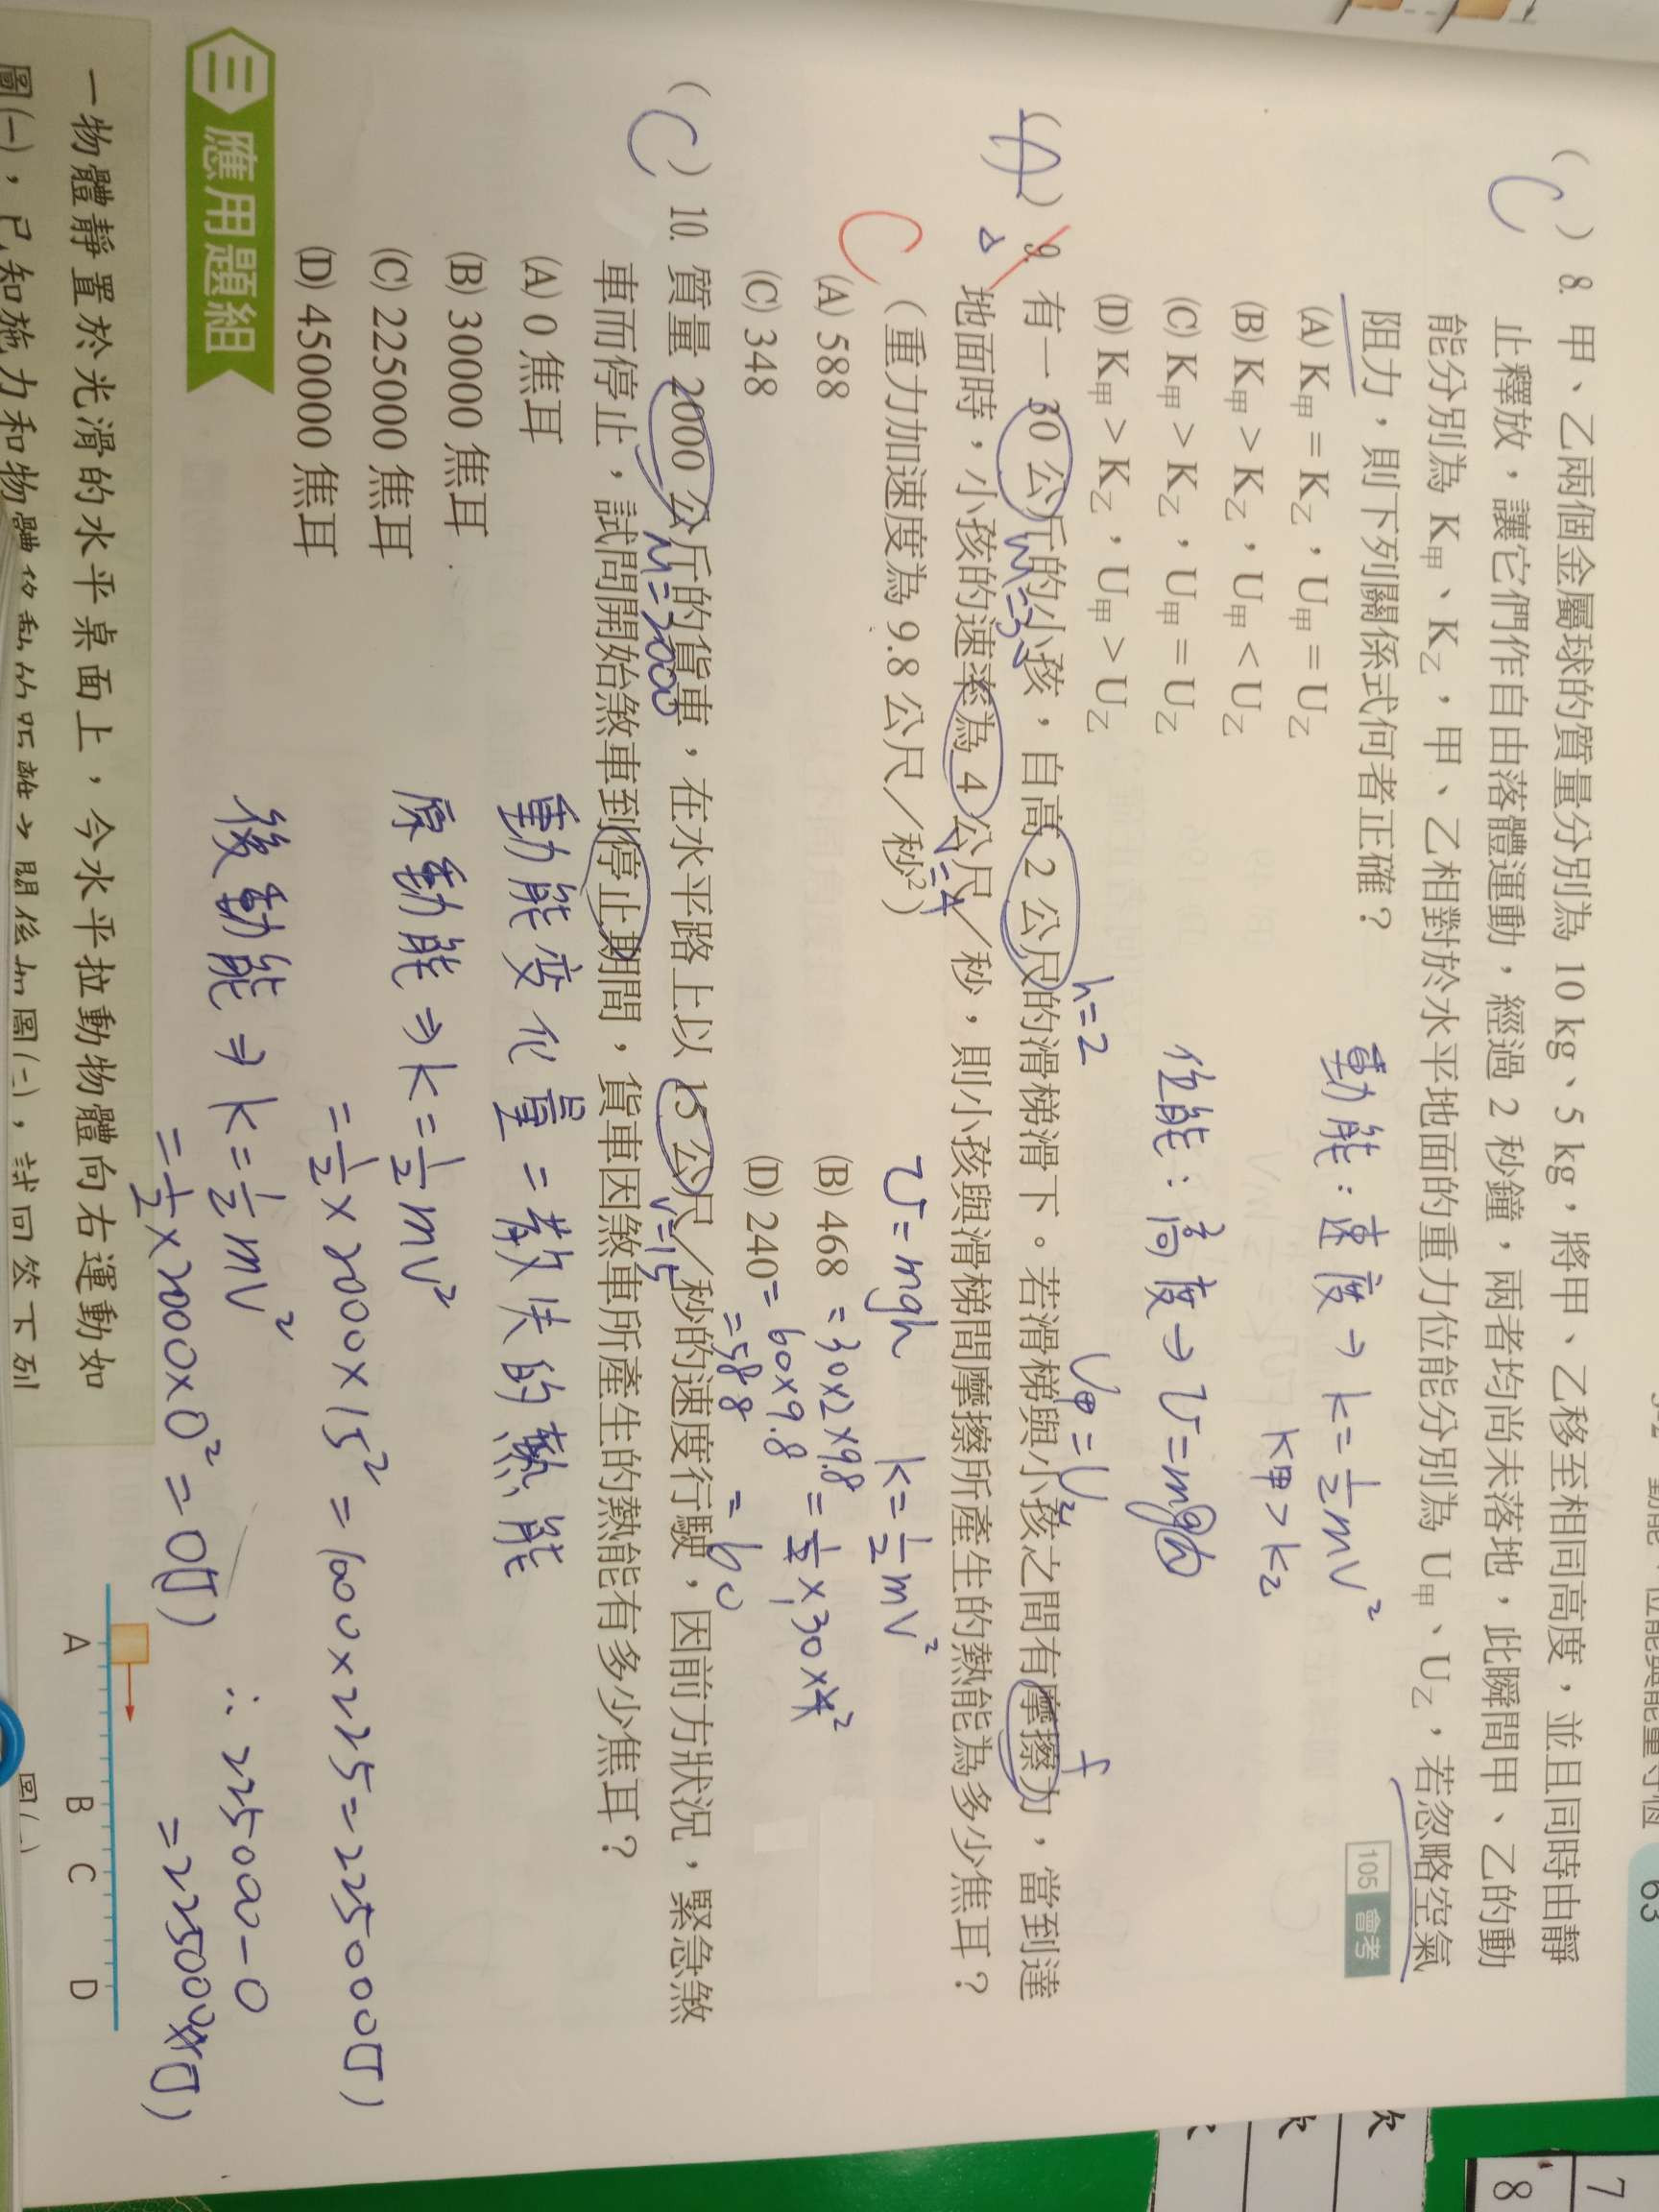 63
(C) 8. 甲、乙兩個金屬球的質量分別為 10 kg、5 kg，將甲、乙移至相同高度，並且同時由靜
止釋放，讓它們作自由落體運動，經過 2 秒鐘，兩者均尚未落地，此瞬間甲、乙的動
能分別為 K甲、K乙，甲、乙相對於水平地面的重力位能分別為 U甲、U乙，若忽略空氣
阻力，則下列關係式何者正確？
105 會考
(A) K甲 = K乙，U甲 = U乙
(B) K甲 > K乙，U甲 < U乙
(C) K甲 > K乙，U甲 = U乙
(D) K甲 > K乙，U甲 > U乙
動能：速度 → k = 1/2 mv²
k甲 > k乙
位能：高度 → U = mgh
U甲 = U乙
h=2
f
(A) 9. 有一 30 公斤的小孩，自高 2 公尺的滑梯滑下。若滑梯與小孩之間有摩擦力，當到達
地面時，小孩的速率為 4 公尺／秒，則小孩與滑梯間摩擦所產生的熱能為多少焦耳？
（重力加速度為 9.8 公尺／秒²）
C
(A) 588
(B) 468
(C) 348
(D) 240
U = mgh
= 30×2×9.8
= 60×9.8
= 588
k = 1/2 mv²
(C) 10. 質量 2000 公斤的貨車，在水平路上以 15 公尺／秒的速度行駛，因前方狀況，緊急煞
M=2000
v=15
車而停止，試問開始煞車到停止期間，貨車因煞車所產生的熱能有多少焦耳？
(A) 0 焦耳
(B) 30000 焦耳
(C) 225000 焦耳
(D) 450000 焦耳
動能変化量 = 散失的熱能
原動能 ⇒ k = 1/2 mv²
= 1/2 × 2000 × 15² = 1000 × 225 = 225000(J)
後動能 ⇒ k = 1/2 mv²
= 1/2 × 2000 × 0² = 0(J)
∴ 225000 - 0
= 225000(J)
三 應用題組
一物體靜置於光滑的水平桌面上，今水平拉動物體向右運動如
圖(一)，已知施力和物體移動的距離之關係如圖(二)，試回答下列
A B C D
圖(一)
7
8